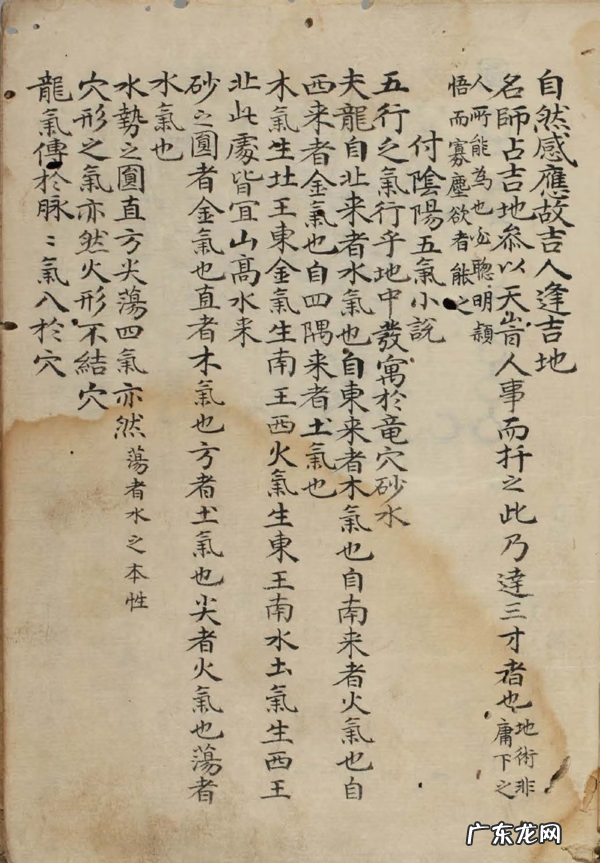 自然感應故吉人逢吉地
名師占吉地参以天時人事而扦之此乃達三才者也地術非庸下之
人所能為也必聰明穎
悟而寡塵欲者能之
付陰陽五氣小說
五行之氣行乎地中發寓於竜穴砂水
夫龍自北来者水氣也自東来者木氣也自南来者火氣也自
西来者金氣也自四隅来者土氣也
木氣生北王東金氣生南王西火氣生東王南水土氣生西王
北此處皆宜山高水来
砂之圓者金氣也直者木氣也方者土氣也尖者火氣也蕩者
水氣也
水勢之圓直方尖蕩四氣亦然蕩者水之本性
穴形之氣亦然火形不結穴
龍氣傳於脉〻氣八於穴
广东龙网